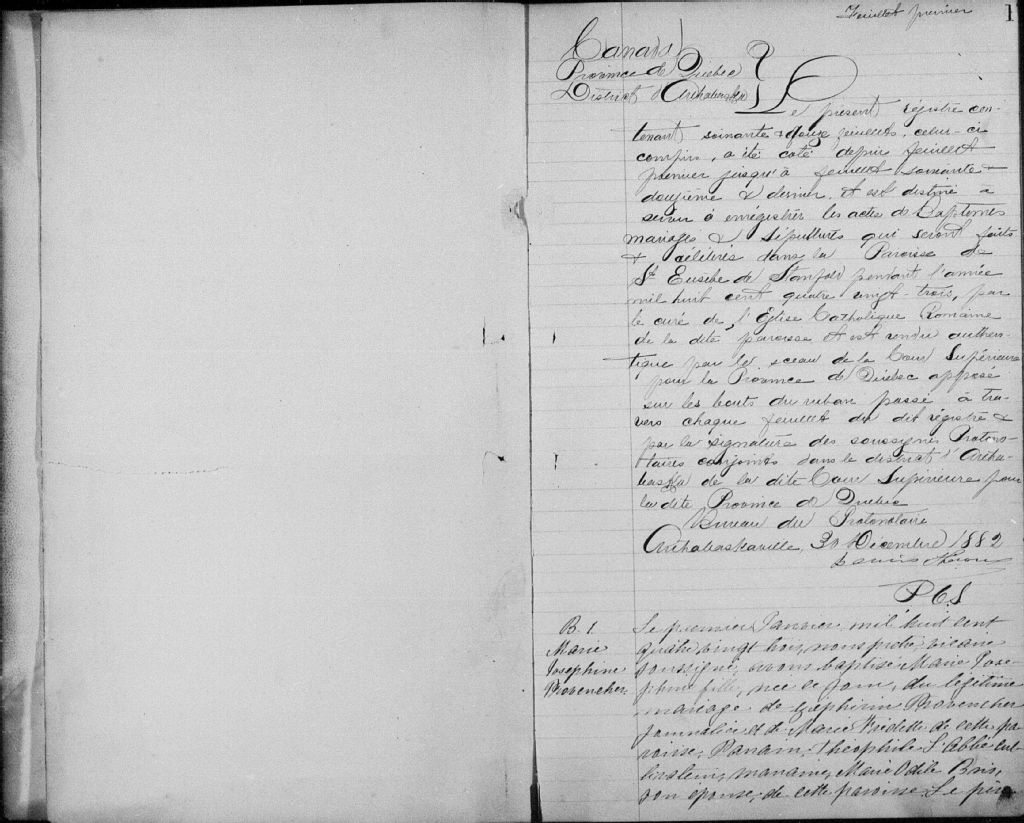 Feuillet premier
1
Canada
Province de Québec
District d'Arthabaska
Le présent régistre con-
tenant soixante & douze feuillets, celui-ci
compris, a été coté depuis feuillet
premier jusqu'à feuillet soixante &
douzième & dernier, et est destiné a
servir à enrégistrer les actes de Baptemes
mariages & Sépultures qui seront faits
& célébrés dans la Paroisse de
St Eusèbe de Stanfold pendant l'année
mil huit cent quatre vingt-trois, par
le curé de l'Eglise Catholique Romaine
de la dite paroisse et est rendu authen-
tique par le sceau de la Cour Supérieure
pour la Province de Québec apposé
sur les bouts du ruban passé à tra-
vers chaque feuillet du dit régistre &
par la signature des soussignés Protono-
taires conjoints dans le district d'Artha-
baska de la dite Cour Supérieure pour
la dite Province de Québec
Bureau du Protonotaire
Arthabaskaville, 30 Decembre 1882
P C S
B. 1.
Marie
Josephine
Provencher
Le premier Janvier mil huit cent
quatre vingt trois, nous prêtre vicaire
soussigné, avons baptisé Marie Jose-
phine fille, née ce jour, du légitime
mariage de Zéphirin Provencher
journalier et de Marie Fredette de cette pa-
roisse, Parrain, Théophile L'Abbé cul-
tivateur, marraine, Marie Odile
son épouse, de cette paroisse. Le père